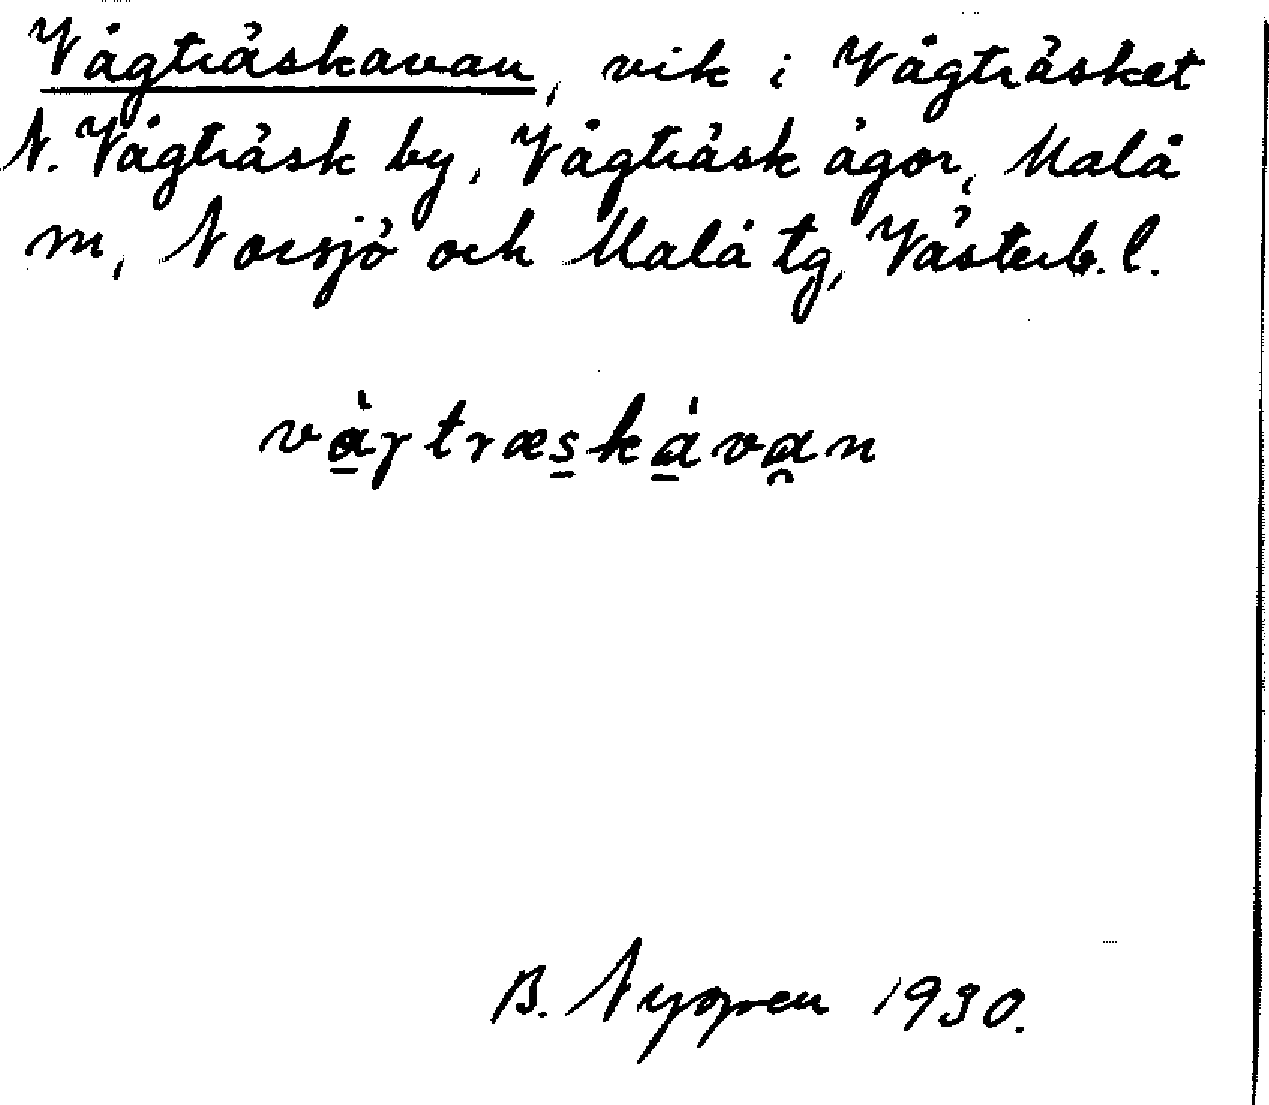 Vågträskavan, vik i Vågträsket
N. Vågträsk by, Vågträsk ägor, Malå
m, Norsjö och Malå tg, Västerb. l.
vàγtræskávan
B. Nygren 1930.